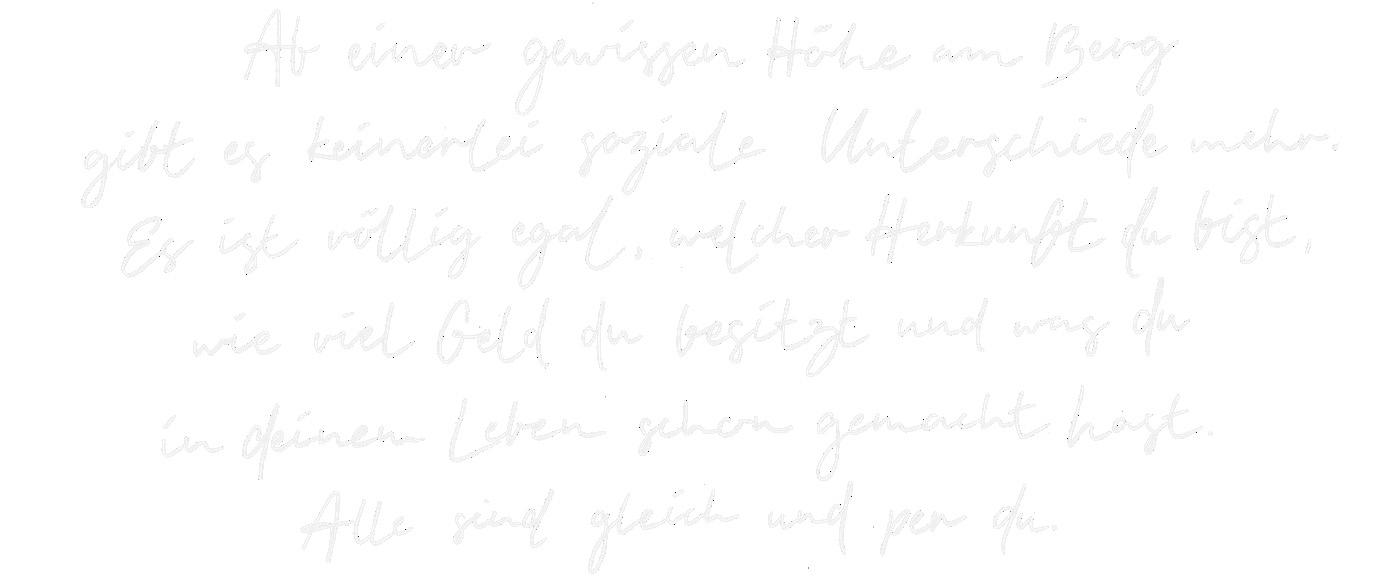 Ab einer gewissen Höhe am Berg
gibt es keinerlei soziale Unterschiede mehr.
Es ist völlig egal, welcher Herkunft du bist,
wie viel Geld du besitzt und was du
in deinem Leben schon gemacht hast.
Alle sind gleich und per du.